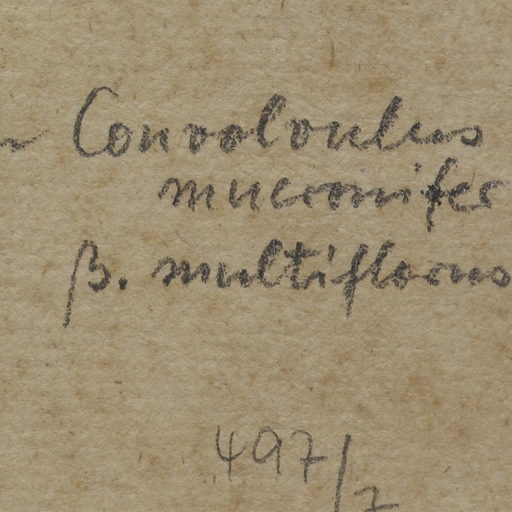 Convolvulus
mucronifer
β. multiflorus
497/7